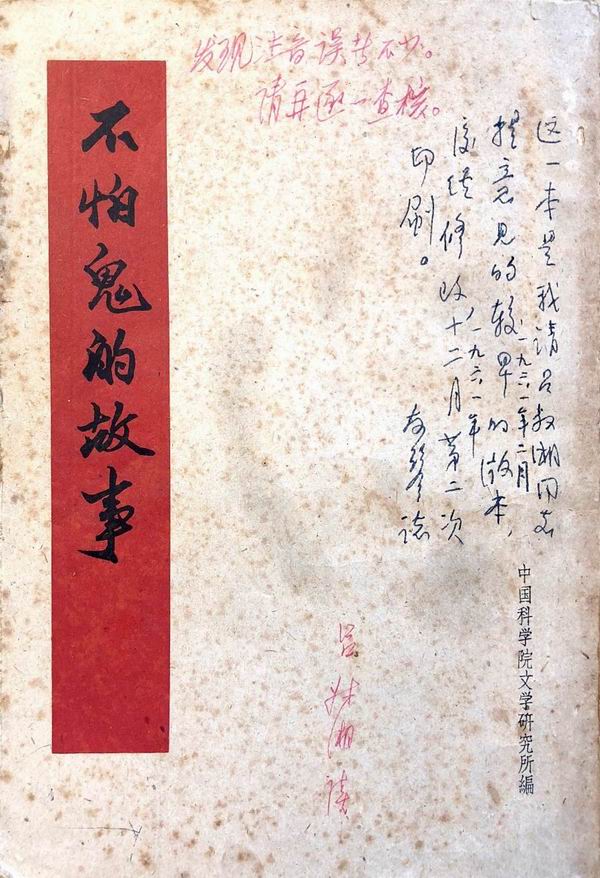 不怕鬼的故事
发现注音误不少。
请再逐一查核。
这一本是我请吕叔湘同志
一九六一年二月
提意见的较早的版本，
一九六一年
后经修改十二月第二次
印刷。
友琴誌
中国科学院文学研究所編
吕叔湘读